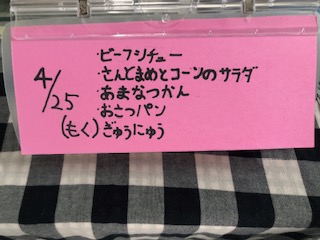 4/25
(もく)
・ビーフシチュー
・さんどまめとコーンのサラダ
・あまなつかん
・おさつパン
・ぎゅうにゅう